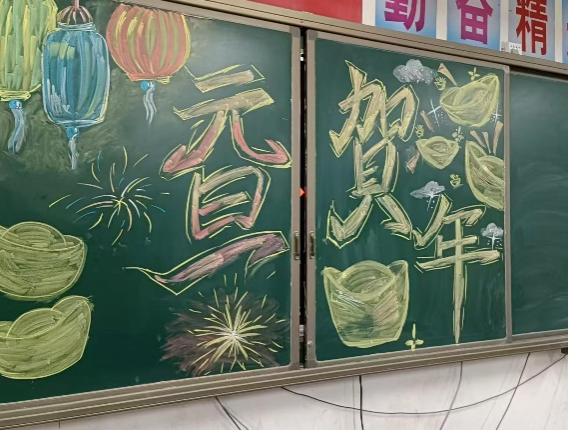 勤奋精
元旦
贺年